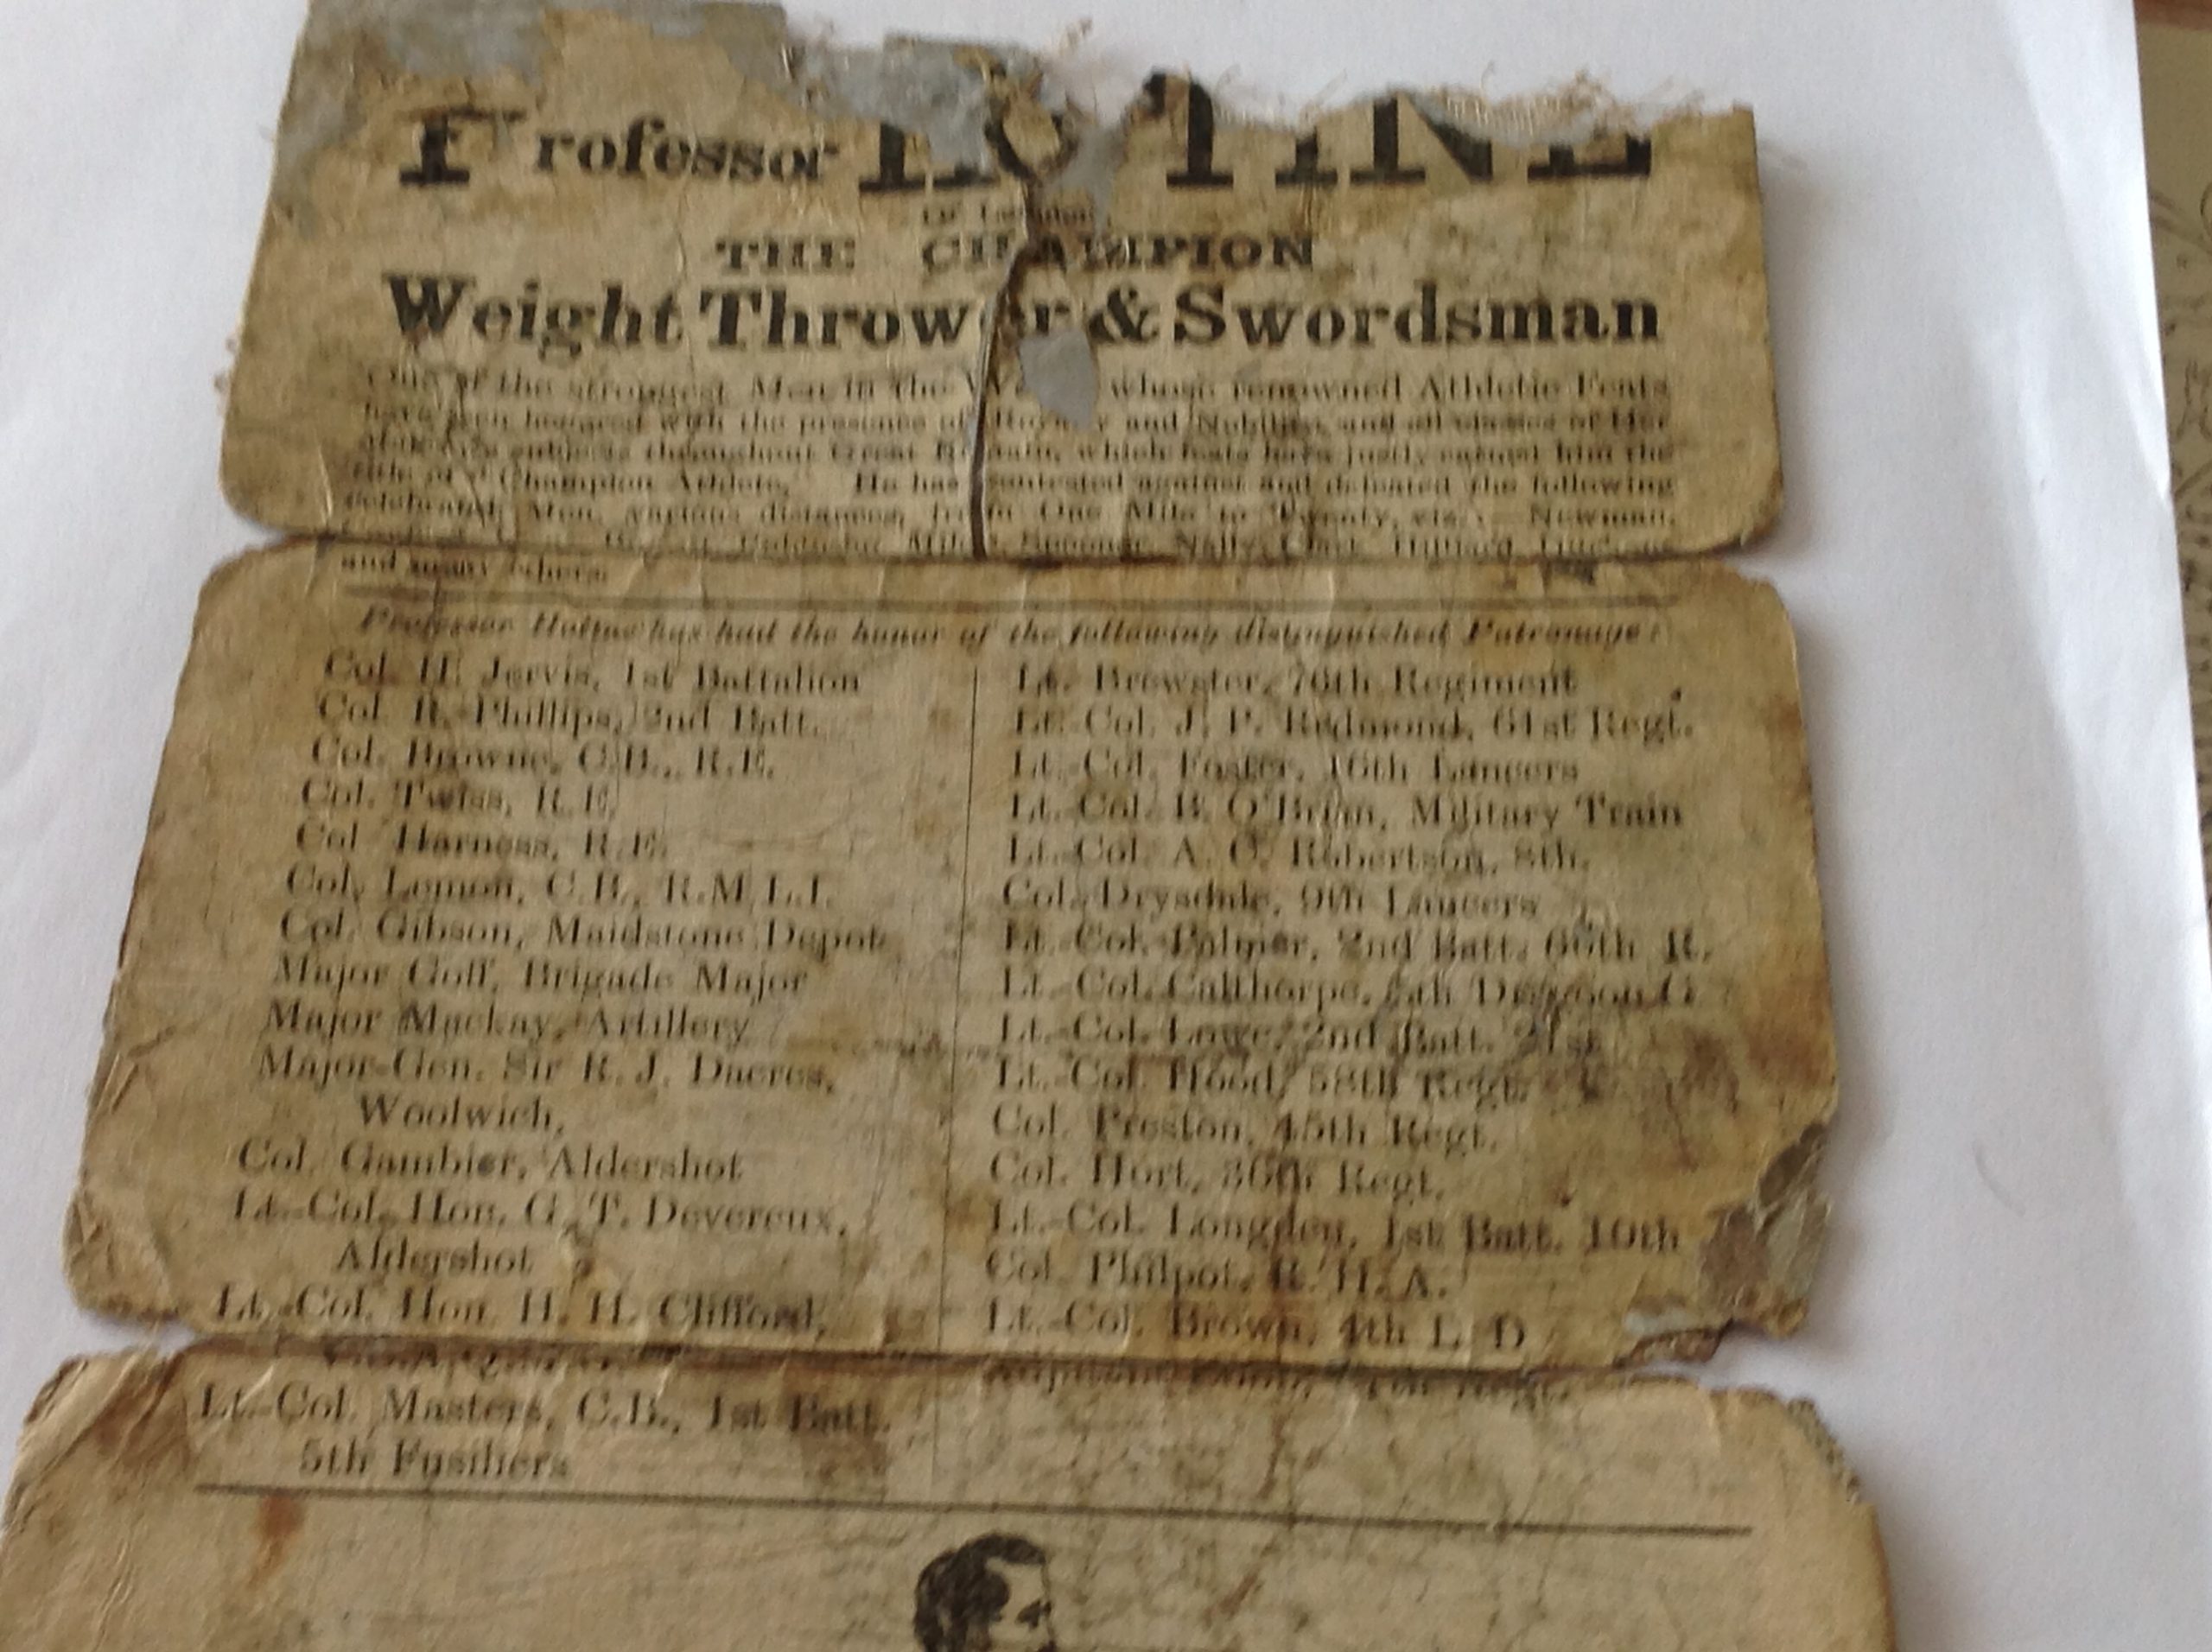 Professor
THE CHAMPION
Weight Thrower & Swordsman
One of the strongest Men in the whose renowned Athletic Feats
have been honored with the presence of Royalty and Nobility, and all classes of Her
subjects throughout Great Britain, which feats have justly earned him the
title of "Champion Athlete." He has contested against and defeated the following
celebrated Men, various distances, from One Mile to Twenty, viz.: Newman,
Spooner, Nally, Clark,
and many others.
Professor has had the honor of the following distinguished Patronage:
Col. H. Jervis, 1st Battalion
Col R. Phillips, 2nd Batt.
Col. Browne, C.B., R.E.
Col. Twiss, R.E.
Col Harness, R.E.
Col. Lemon, C.B., R.M.L.I.
Col. Gibson, Maidstone Depot
Major Goff, Brigade Major
Major Mackay, Artillery
Major-Gen. Sir R. J. Dacres,
Woolwich,
Col. Gambier, Aldershot
Lt.-Col. Hon. G. T. Devereux,
Aldershot
Lt.-Col. Hon. H. H. Clifford,
Lt.-Col. Masters, C.B., 1st Batt.
5th Fusiliers
Lt. Brewster, 76th Regiment
Lt.-Col. J. P. Redmond, 61st Regt.
Lt.-Col. Foster, 16th Lancers
Lt.-Col. B. O'Brien, Military Train
Lt.-Col. A. C. Robertson, 8th.
Col. Drysdale, 9th Lancers
Lt.-Col. Palmer, 2nd Batt. 60th R.
Lt.-Col. Calthorpe, Dragoon G
Lt.-Col. Lowe, 2nd Batt. 21st
Lt.-Col. Hood, 58th Regt.
Col. Preston, 45th Regt.
Col. Hort, 36th Regt.
Lt.-Col. Longden, 1st Batt. 10th
Col. Philpot, R.H.A.
Lt.-Col. Brown, 4th L. D
Regt.